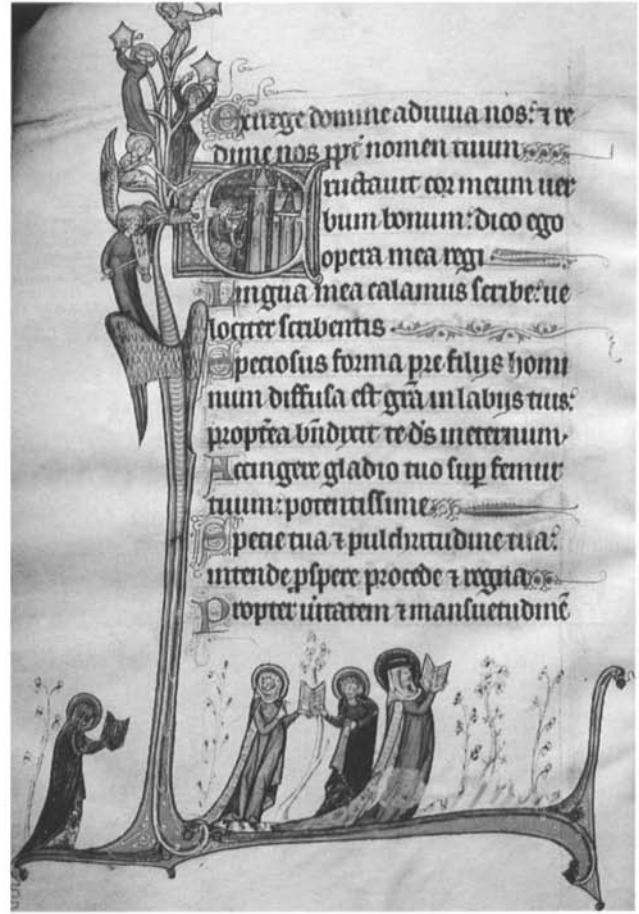 Exurge domine adiuva nos: ⁊ re
dime nos ppt nomen tuum
Eructauit cor meum uer
bum bonum: dico ego
opera mea regi
Lingua mea calamus scribe: ue
lociter scribentis
Speciosus forma pre filijs homi
num diffusa est gra in labijs tuis:
proptea bndixit te ds ineternum
Accingere gladio tuo sup femur
tuum: potentissime
Specie tua ⁊ pulchritudine tua:
intende pspere procede ⁊ regna
Propter uitatem ⁊ mansuetudine